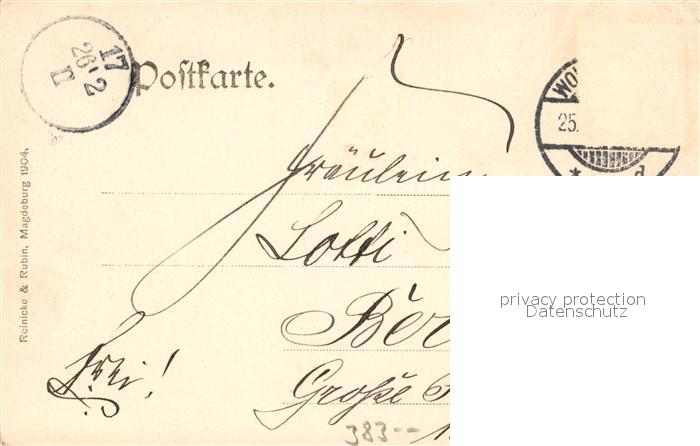 17
26 2
II
Postkarte.
WO
25.
d
Reinicke & Rubin, Magdeburg 1904.
Fräulein
Lotti
Ber
Frei!
Große
383
privacy protection
Datenschutz